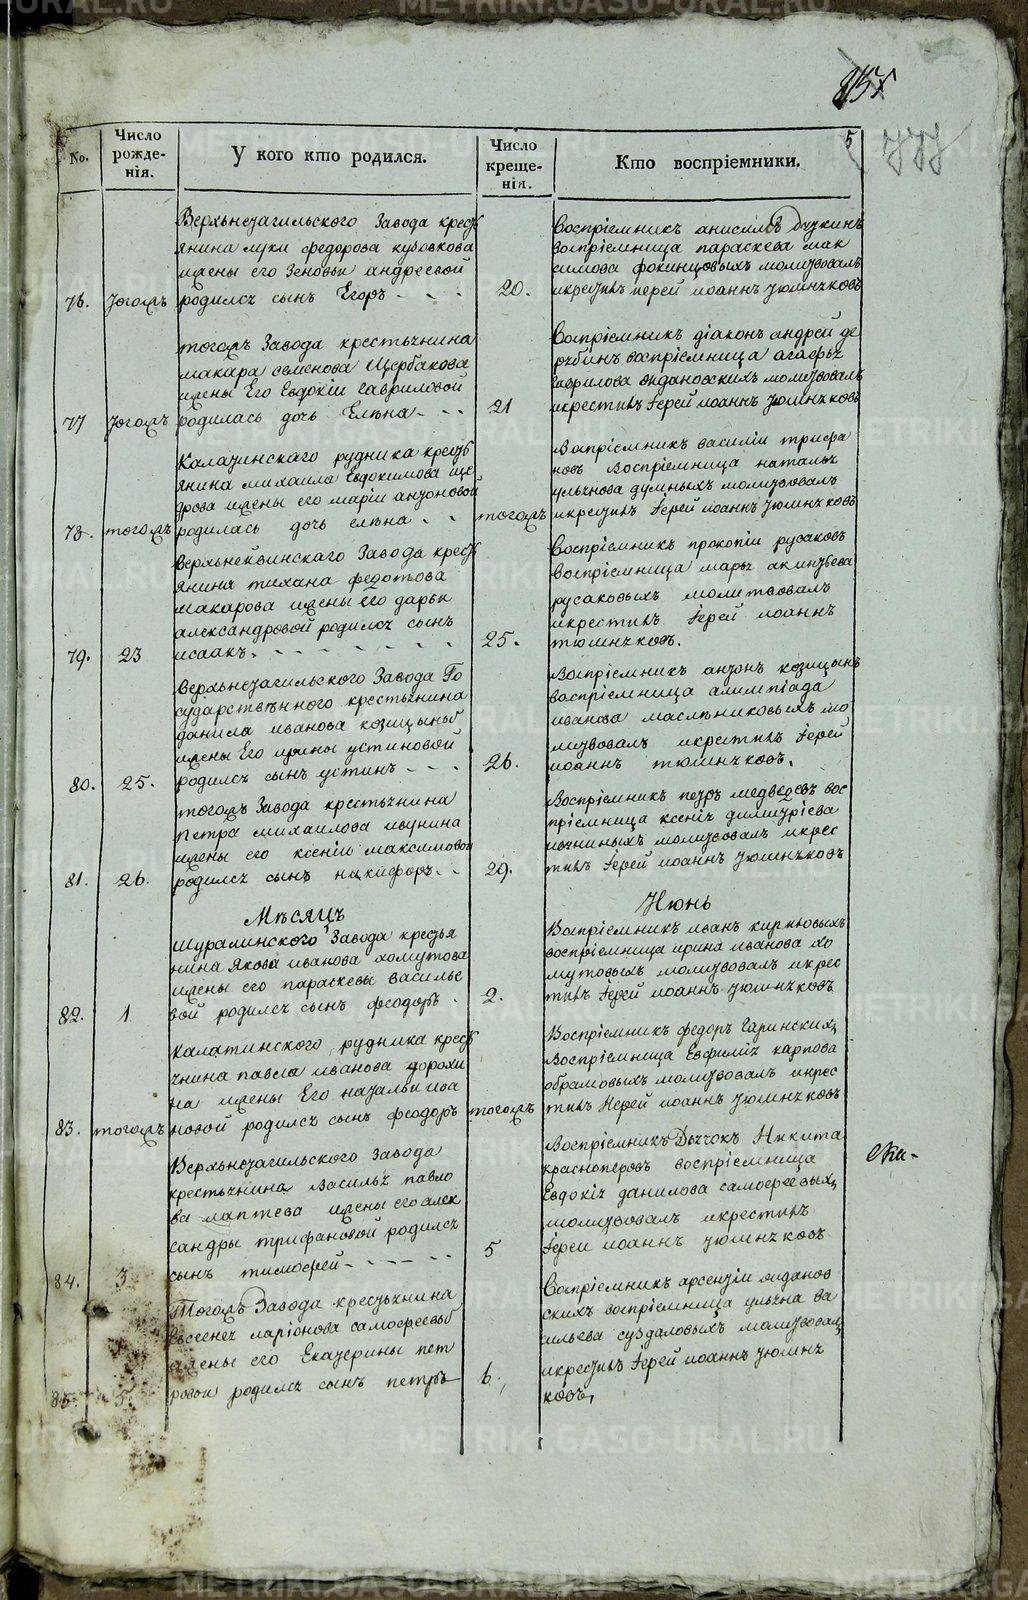 No.
Число рожде-нія.
У кого кто родился.
Число креще-нія.
Кто воспріемники.
5
777
Верхьнетагильского Завода крестъ
янина луки федорова кубовкова
жены его Зеновьи андреевой
76. тогожъ родилсѧ сынъ Егоръ - - -
20.
воспріемница параскева мак
симова фокинцовыхъ молитвовалъ
икрестилъ іерей иоаннъ тюшнѧковъ
тогожъ Завода крестьѧнина
макара семенова Щербакова
жены Его Евдокіи гавриловой
77 тогожъ родилась дочь Елѣна - - -
21
Вопріемникъ діаконъ андрей де
воспріемница агафьѧ
гаврилова молитвовалъ
икрестилъ іерей иоаннъ тюшнѧковъ
Калатинскаго рудника крестъ
янина михаила Евдокимова ще
дрова жены его маріи антоновой
78. тогожъ родилась дочь елѣна - -
тогожъ
Вопріемникъ василіи трифа
новъ Воспріемница натальѧ
ульѧнова думныхъ молитвовалъ
икрестилъ іерей иоаннъ тюшнѧковъ
Верхьнейвинскаго Завода крестъ
янина тихана федотова
макарова жены Его дарьи
александровой родилсѧ сынъ
79. 23 исаакъ. - - - - - - -
25.
Воспріемникъ прокопіи русаковъ
воспріемница марьѧ акинтьева
русаковыхъ молитвовалъ
икрестилъ іерей иоаннъ
тюшнѧковъ.
Верхьнетагильского Завода Го
сударственного крестьѧнина
данила иванова козицына
жены Его ирины устиновой
80. 25. родилсѧ сынъ устинъ - - -
26.
Вопріемникъ антонъ козицынъ
воспріемница алимпіада
иванова маслѣниковыхъ мо
литвовалъ икрестилъ іерей
иоаннъ тюшнѧковъ.
тогожъ Завода крестьѧнина
петра михаилова ивунина
жены его ксеніи максимовой
81. 26. родилсѧ сынъ никифоръ - -
29.
Воспріемникъ петръ медведевъ вос
пріемница ксеніѧ димитріева
молитвовалъ икрес
тилъ іерей иоаннъ тюшнѧковъ
Мѣсяцъ Июнь
шуралинского Завода крестья
нина якова иванова хомутова
жены его параскевы василье
82. 1 вой родилсѧ сынъ феодоръ -
2.
Вопріемникъ иванъ кирпиовыхъ
воспріемница ирина иванова хо
мутовыхъ молитвовалъ икрес
тилъ іерей иоаннъ тюшнѧковъ
калатинского рудника крестъ
ѧнина павла иванова дорохи
на жены Его натальи ива
83. тогожъ новой родилсѧ сынъ феодоръ
тогожъ
Воспріемникъ федоръ Гаринскихъ
Воспріемница Евфиміѧ карпова
абрамовыхъ молитвовалъ икрес
тилъ Иерей иоаннъ тюшнѧковъ
Верхьнетагильского Завода
крестьѧнина Василья павло
ва лаптева жены его алек
сандры трифановой родилсѧ
84. 3 сынъ тимофей - - - - -
5
Воспріемникъ Дьѧчокъ Никита
красноперовъ воспріемница
Евдокіѧ данилова самофеевыхъ
молитвовалъ икрестилъ
іереи иоаннъ тюшнѧковъ
Тогожъ Завода крестьѧнина
Евсевеѧ ларіонова самофеевы
жены его Екатерины пет
85. 5. ровои родилсѧ сынъ петръ
6.
Вопріемникъ арсентіи жданов
скихъ воспріемница ульѧна ва
ильева суздаловыхъ молитвовалъ
икрестилъ іерей иоаннъ тюшнѧ
ковъ,
METRIKI.GASO-URAL.RU